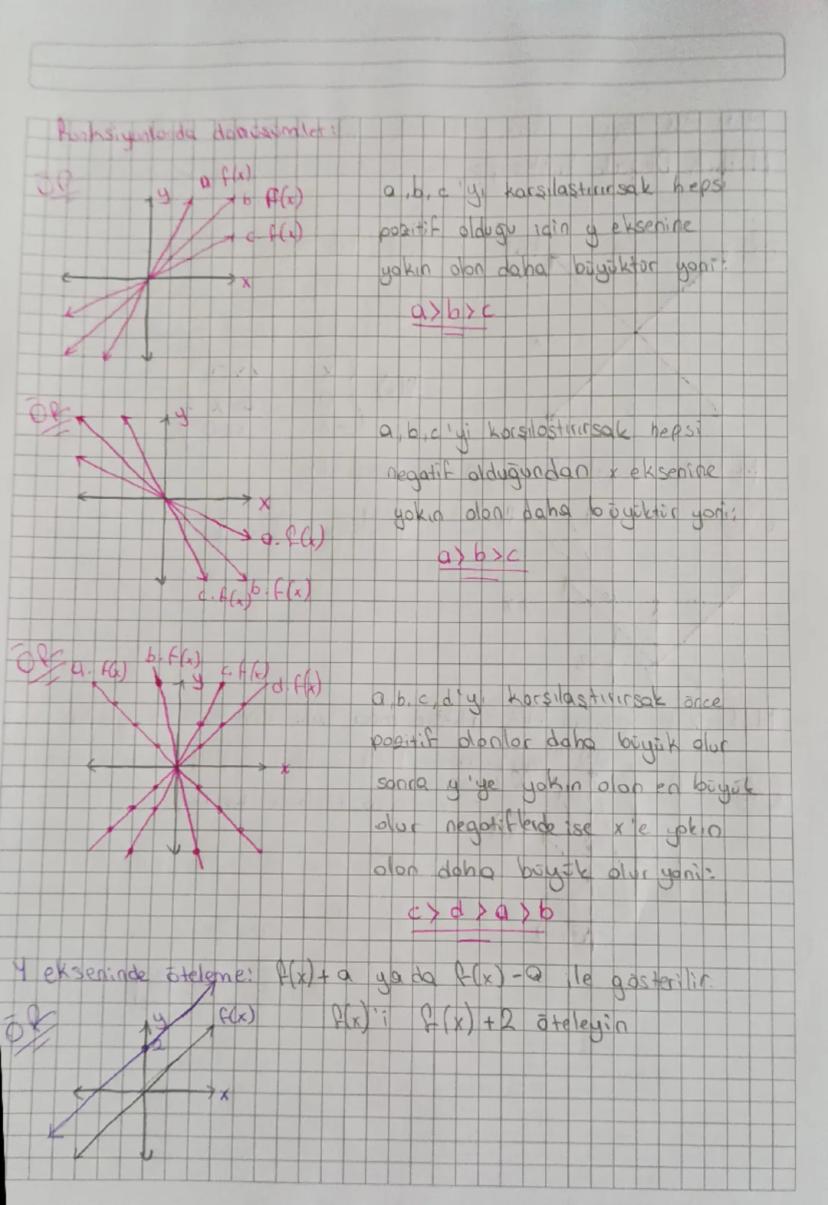 Fonksiyonlarda dönüşümler:
ÖR
y
a f(x)
b f(x)
c f(x)
x
a,b,c 'yi karşılaştırırsak hepsi
pozitif olduğu için y eksenine
yakın olan daha büyüktür yani:
a>b>c
ÖR
y
x
a.f(x)
b.f(x)
c.f(x)
a,b,c'yi karşılaştırırsak hepsi
negatif olduğundan x eksenine
yakın olan daha büyüktür yani:
a>b>c
ÖR
a.f(x)
b.f(x)
y
c.f(x)
d.f(x)
x
a,b,c,d'yi karşılaştırırsak önce
pozitif olanlar daha büyük olur
sonra y'ye yakın olan en büyük
olur negatiflerde ise x'e yakın
olan daha büyük olur yani:
c>d>a>b
Y ekseninde öteleme: f(x)+a ya da f(x)-a ile gösterilir.
ÖR
y
f(x)
2
x
f(x)'i f(x)+2 öteleyin